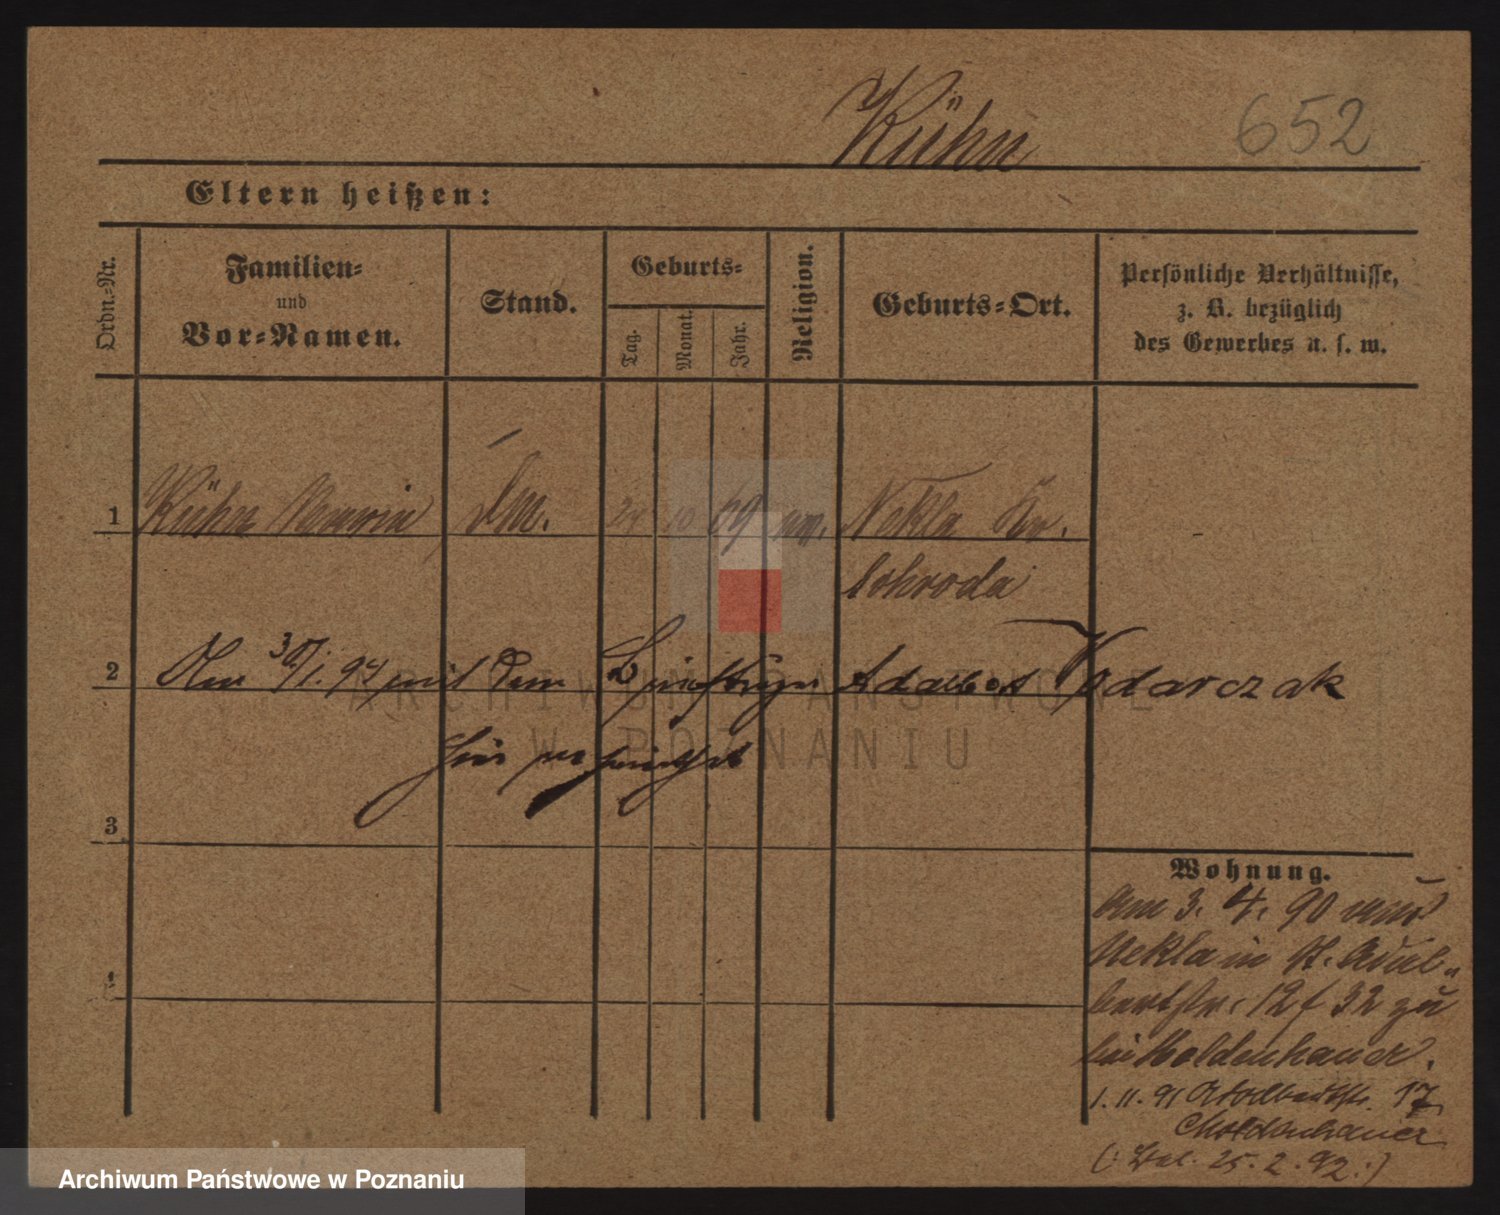 Kühn 652
Eltern heißen:
Ordn.-Nr.
Familien-
und
Vor-Namen.
Stand.
Geburts-
Tag.
Monat.
Jahr.
Religion.
Geburts-Ort.
Persönliche Verhältnisse,
z. B. bezüglich
des Gewerbes u. s. w.
1 Kühn 10 69 Nekla Kr.
Schroda
2 Am 30/1. 94 mit dem Adalbert
hier
3
4
Wohnung.
am 3. 4. 90 aus
Nekla in St. Adal-
bertstr. 12 f 32 zu
bei Moldenhauer.
1. 11. 91 Adalbertstr. 17
Moldenhauer
25. 2. 92 :)
ARCHIWUM PAŃSTWOWE
W POZNANIU
Archiwum Państwowe w Poznaniu